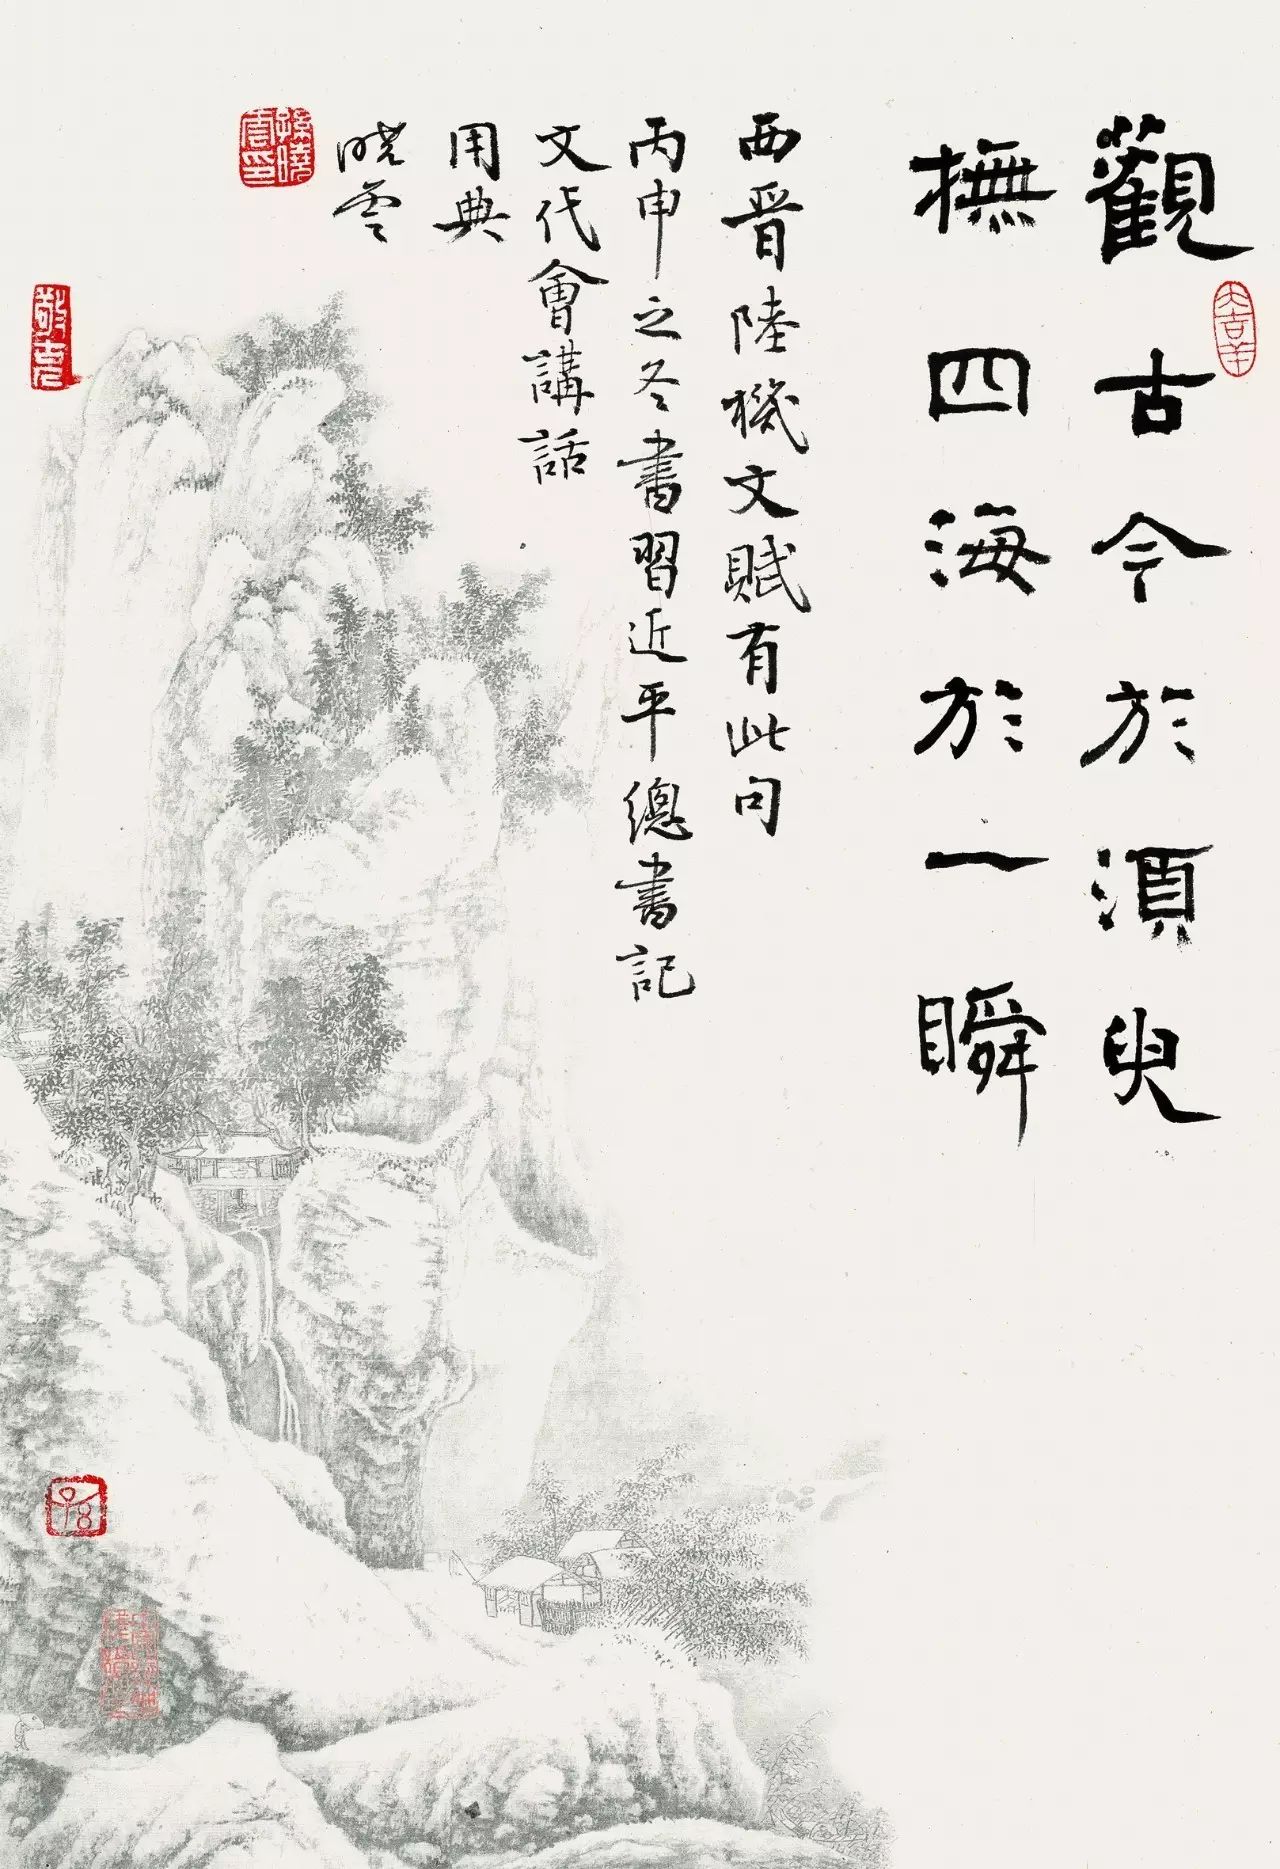 觀古今於須臾
撫四海於一瞬
西晉陸機文賦有此句
丙申之冬書習近平總書記
文代會講話
用典
曉雲
孫曉雲印
大吉羊